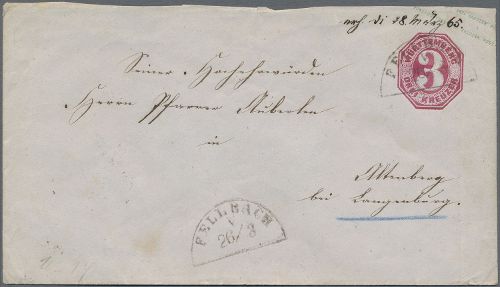 erh di 28. März 65.
WÜRTTEMBERG
3
DREI KREUZER
Seiner Hochehrwürden
Herrn Pfarrer Auberlen
in
Altenberg
bei Langenburg.
FELLBACH
26/3